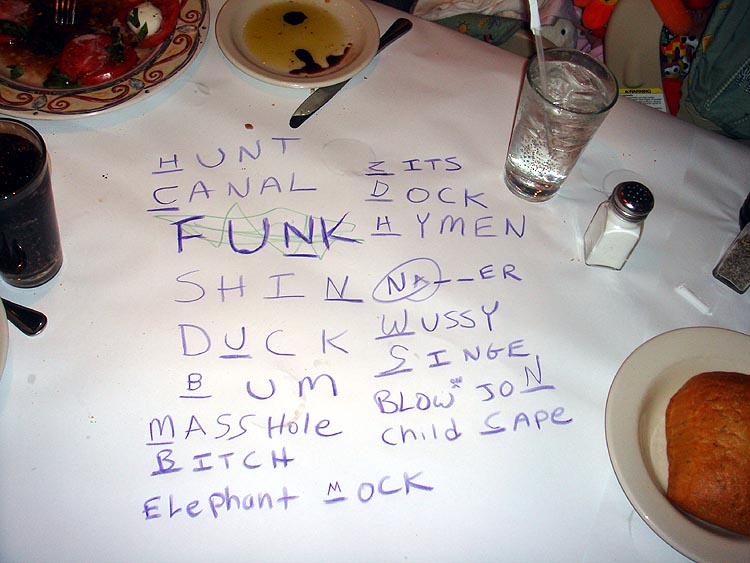 HUNT
CANAL
FUNK
SHIN
DUCK
BUM
MASSHole
BITCH
Elephant MOCK
ZITS
DOCK
HYMEN
NA__ER
WUSSY
SINGE
BLOW JON
Child SApe
WARNING